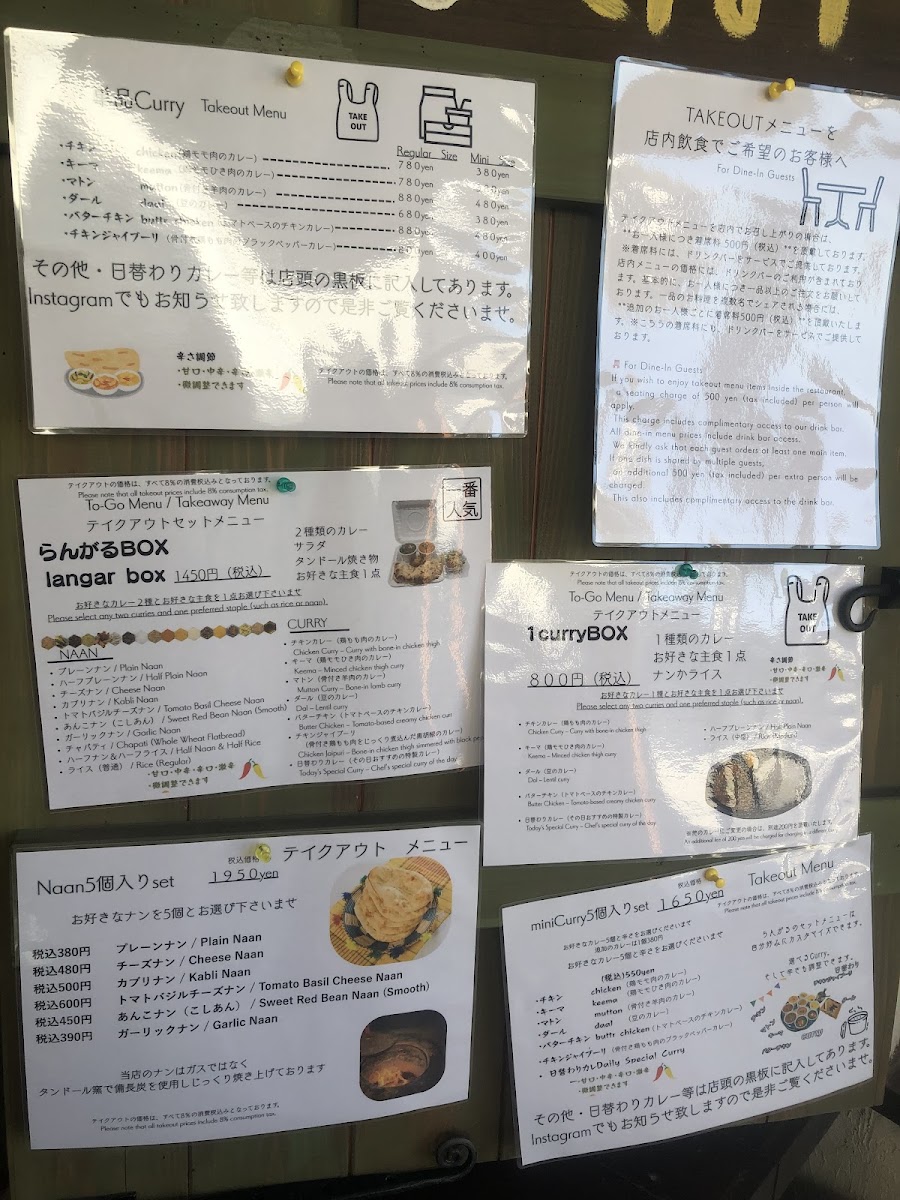 品Curry Takeout Menu
TAKE OUT
Regular Size Mini
・チキン chicken (鶏モモ肉のカレー) 780yen 380yen
・キーマ keema (鶏モモひき肉のカレー) 780yen
・マトン mutton (骨付き羊肉のカレー) 880yen 480yen
・ダール daal 680yen 380yen
・バターチキン butter chicken (トマトベースのチキンカレー) 880yen 480yen
・チキンジャイプーリ (骨付き鶏もも肉のブラックペッパーカレー) 400yen
その他・日替わりカレー等は店頭の黒板に記入してあります。
Instagramでもお知らせ致しますので是非ご覧くださいませ。
辛さ調節
・甘口・中辛・辛口・激辛
・微調整できます
テイクアウトの価格は、すべて8%の消費税込みとなっております。
Please note that all takeout prices include 8% consumption tax.
TAKEOUTメニューを
店内飲食でご希望のお客様へ
For Dine-In Guests
テイクアウトメニューを店内でお召し上がりの場合は、
**お一人様につき着席料 500円（税込）**を頂戴しております。
※着席料には、ドリンクバーをサービスでご提供しております。
店内メニューの価格には、ドリンクバーのご利用が含まれており
ます。基本的に、お一人様につき一品以上のご注文をお願いして
おります。一品のお料理を複数名でシェアされる場合には、
**追加のお一人様ごとに着席料500円（税込）**を頂戴いたしま
す。※こちらの着席料にも、ドリンクバーをサービスでご提供して
おります。
For Dine-In Guests
If you wish to enjoy takeout menu items inside the restaurant,
a seating charge of 500 yen (tax included) per person will
apply.
This charge includes complimentary access to our drink bar.
All dine-in menu prices include drink bar access.
We kindly ask that each guest orders at least one main item.
If one dish is shared by multiple guests,
an additional 500 yen (tax included) per extra person will be
charged.
This also includes complimentary access to the drink bar.
テイクアウトの価格は、すべて8%の消費税込みとなっております。
Please note that all takeout prices include 8% consumption tax.
To-Go Menu / Takeaway Menu
テイクアウトセットメニュー
一番
人気
らんがるBOX
langar box 1450円（税込）
2種類のカレー
サラダ
タンドール焼き物
お好きな主食1点
お好きなカレー2種とお好きな主食を1点お選び下さいませ
Please select any two curries and one preferred staple (such as rice or naan).
NAAN
• プレーンナン / Plain Naan
• ハーフプレーンナン / Half Plain Naan
• チーズナン / Cheese Naan
• カブリナン / Kabli Naan
• トマトバジルチーズナン / Tomato Basil Cheese Naan
• あんこナン（こしあん） / Sweet Red Bean Naan (Smooth)
• ガーリックナン / Garlic Naan
• チャパティ / Chapati (Whole Wheat Flatbread)
• ハーフナン＆ハーフライス / Half Naan & Half Rice
• ライス（普通） / Rice (Regular)
・甘口・中辛・辛口・激辛
・微調整できます
CURRY
• チキンカレー（鶏もも肉のカレー）
Chicken Curry – Curry with bone-in chicken thigh
• キーマ（鶏モモひき肉のカレー）
Keema – Minced chicken thigh curry
• マトン（骨付き羊肉のカレー）
Mutton Curry – Bone-in lamb curry
• ダール（豆のカレー）
Dal – Lentil curry
• バターチキン（トマトベースのチキンカレー）
Butter Chicken – Tomato-based creamy chicken curry
• チキンジャイプーリ
（骨付き鶏もも肉をじっくり煮込んだ黒胡椒のカレー）
Chicken Jaipuri – Bone-in chicken thigh simmered with black pe
• 日替わりカレー（その日おすすめの特製カレー）
Today's Special Curry – Chef's special curry of the day
テイクアウトの価格は、すべて8%の消費税込みとなっております。
Please note that all takeout prices include 8% consumption tax.
To-Go Menu / Takeaway Menu
テイクアウトメニュー
TAKE OUT
1curryBOX
800円（税込）
1種類のカレー
お好きな主食1点
ナンかライス
辛さ調節
・甘口・中辛・辛口・激辛
・微調整できます
お好きなカレー1種とお好きな主食を1点お選び下さいませ
Please select any two curries and one preferred staple (such as rice or naan).
• チキンカレー（鶏もも肉のカレー）
Chicken Curry – Curry with bone-in chicken thigh
• キーマ（鶏モモひき肉のカレー）
Keema – Minced chicken thigh curry
• ダール（豆のカレー）
Dal – Lentil curry
• バターチキン（トマトベースのチキンカレー）
Butter Chicken – Tomato-based creamy chicken curry
• 日替わりカレー（その日おすすめの特製カレー）
Today's Special Curry – Chef's special curry of the day
• ハーフプレーンナン / Half Plain Naan
• ライス（中盛） / Rice (Medium)
※他のカレーにご変更の場合は、別途200円を頂戴いたします。
An additional fee of 200 yen will be charged for changing to a different curry.
税込価格
テイクアウト メニュー
Naan5個入りset 1950yen
お好きなナンを5個とお選び下さいませ
税込380円 プレーンナン / Plain Naan
税込480円 チーズナン / Cheese Naan
税込500円 カブリナン / Kabli Naan
税込600円 トマトバジルチーズナン / Tomato Basil Cheese Naan
税込450円 あんこナン（こしあん） / Sweet Red Bean Naan (Smooth)
税込390円 ガーリックナン / Garlic Naan
当店のナンはガスではなく
タンドール窯で備長炭を使用しじっくり焼き上げております
テイクアウトの価格は、すべて8%の消費税込みとなっております。
Please note that all takeout prices include 8% consumption tax.
税込価格
miniCurry5個入りset 1650yen
Takeout Menu
テイクアウトの価格は、すべて8%の消費税込みとなっております。
Please note that all takeout prices include 8% consumption tax.
お好きなカレー5個と辛さをお選びくださいませ
追加のカレーは1個380円
お好きなカレー5個と辛さをお選びくださいませ
(税込)550yen
・チキン chicken (鶏モモ肉のカレー)
・キーマ keema (鶏モモひき肉のカレー)
・マトン mutton (骨付き羊肉のカレー)
・ダール daal (豆のカレー)
・バターチキン butter chicken (トマトベースのチキンカレー)
・チキンジャイプーリ (骨付き鶏もも肉のブラックペッパーカレー)
・日替わりカレDaily Special Curry
・甘口・中辛・辛口・激辛
・微調整できます
5人がるのセットメニューは
自分好みにカスタマイズできます。
選べるCurry、
そして辛さも調整できます。
curry
その他・日替わりカレー等は店頭の黒板に記入してあります。
Instagramでもお知らせ致しますので是非ご覧くださいませ。